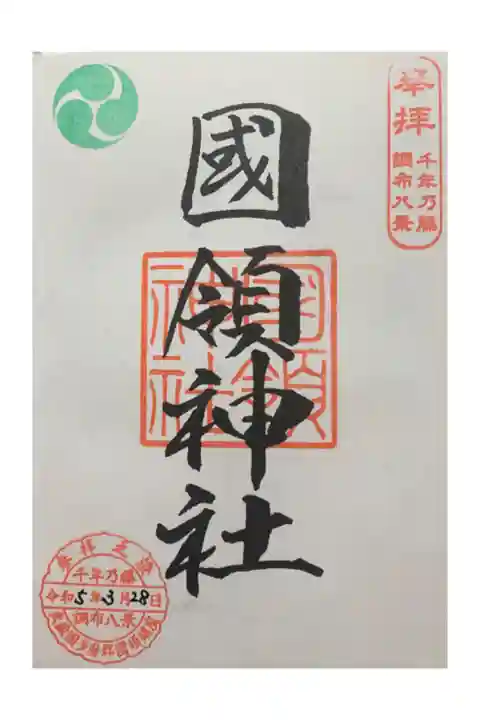 奉拝
千年乃藤
調布八景
國領神社
國領
神社
奉拝之証
千年乃藤
令和5年3月28日
調布八景